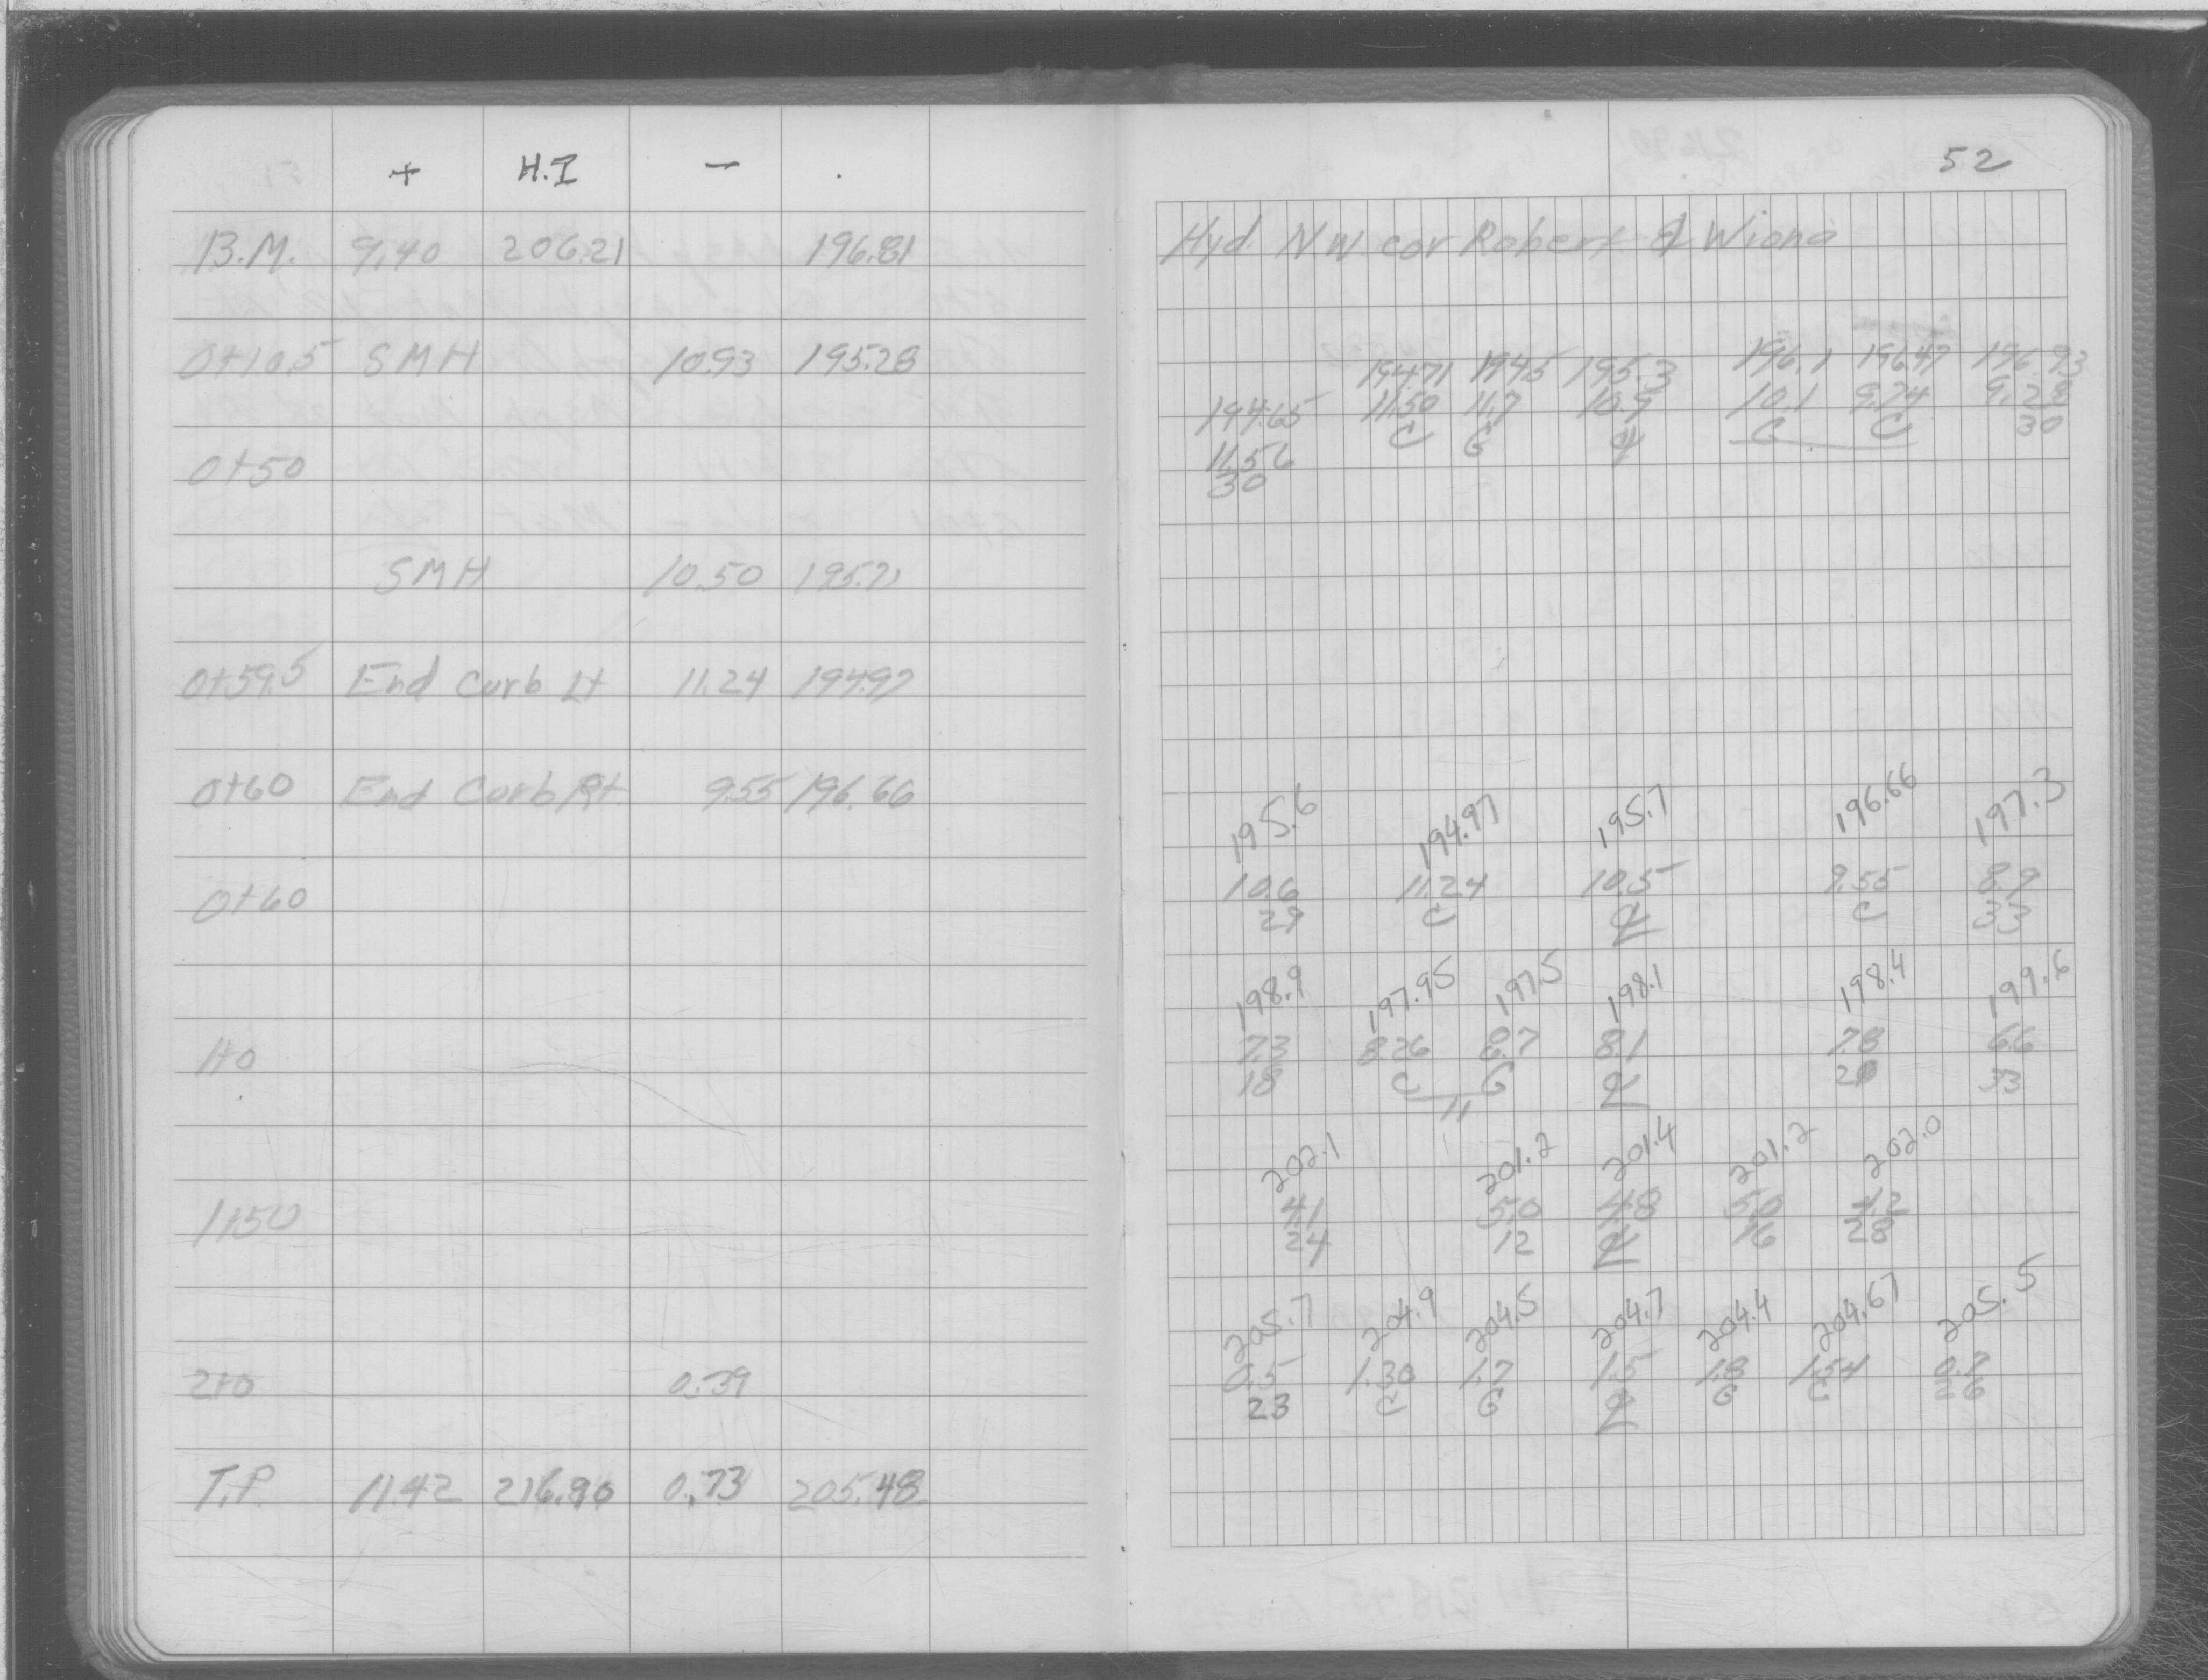 + H.I −
B.M. 9.40 206.21 196.81
0+10.5 SMH 10.93 195.28
0+50
SMH 10.50 195.71
0+59.5 End Curb Lt 11.24 194.97
0+60 End Curb Rt. 9.55 196.66
0+60
1+0
1+50
2+0 0.39
T.P. 11.42 216.90 0.73 205.48
52
Hyd. N.W. cor Robert & Wiona
194.71 194.5 195.3 196.1 196.47 196.93
194.65 11.50 11.7 10.9 10.1 9.74 9.28
C G ℄ G C 30
11.56
30
195.6 194.97 195.7 196.66 197.3
10.6 11.24 10.5 9.55 8.9
29 C ℄ C 33
198.9 197.95 197.5 198.1 198.4 199.6
7.3 8.26 8.7 8.1 7.8 6.6
18 C G ℄ 20 33
11
202.1 201.2 201.4 201.2 202.0
4.1 5.0 4.8 5.0 4.2
24 12 ℄ 16 28
205.7 204.9 204.5 204.7 204.4 204.67 205.5
0.5 1.30 1.7 1.5 1.8 1.54 0.7
23 C G ℄ G C 26